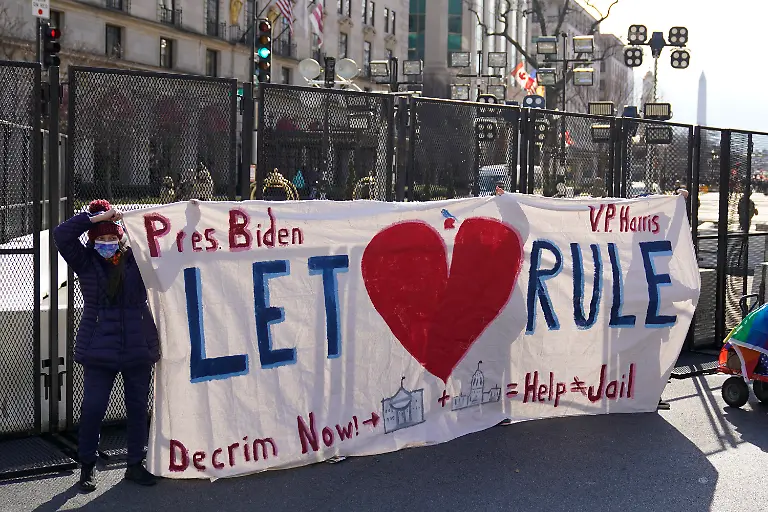 Pres. Biden
V.P. Harris
LET RULE
Decrim Now! → + = Help ≠ Jail